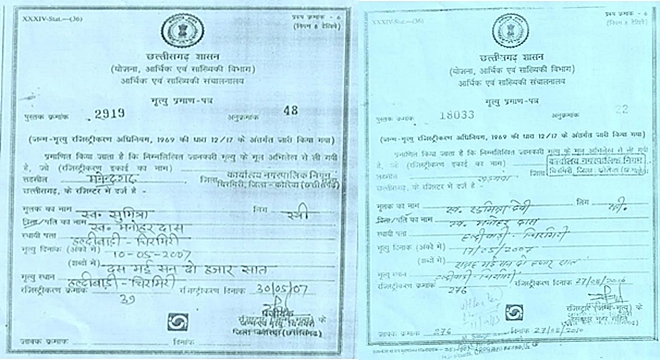 XXXIV-Stat.—(36)
प्रपत्र क्रमांक - 6
(नियम 8 देखिये)
छत्तीसगढ़ शासन
(योजना, आर्थिक एवं सांख्यिकी विभाग)
आर्थिक एवं सांख्यिकी संचालनालय
मृत्यु प्रमाण-पत्र
पुस्तक क्रमांक 2919 अनुक्रमांक 48
(जन्म-मृत्यु रजिस्ट्रीकरण अधिनियम, 1969 की धारा 12/17 के अंतर्गत जारी किया गया)
प्रमाणित किया जाता है कि निम्नलिखित जानकारी मृत्यु के मूल अभिलेख से ली गयी
है, जो (रजिस्ट्रीकरण इकाई का नाम)
कार्यालय नगरपालिक निगम
तहसील मनेन्द्रगढ़ जिला
चिरमिरी, जिला - कोरिया (छत्तीसगढ़)
छत्तीसगढ़, के रजिस्टर में दर्ज है -
मृतक का नाम स्व. सुमित्रा लिंग स्त्री
पिता/पति का नाम स्व. मनोहर दास
स्थायी पता हल्दीबाड़ी - चिरमिरी
मृत्यु दिनांक (अंकों में) 10-05-2007
(शब्दों में) दस मई सन दो हजार सात
मृत्यु स्थान हल्दीबाड़ी - चिरमिरी
रजिस्ट्रीकरण क्रमांक 39 रजिस्ट्रीकरण दिनांक 30/05/07
जावक क्रमांक दिनांक
XXXIV-Stat.—(36)
प्रपत्र क्रमांक - 6
(नियम 8 देखिये)
छत्तीसगढ़ शासन
(योजना, आर्थिक एवं सांख्यिकी विभाग)
आर्थिक एवं सांख्यिकी संचालनालय
मृत्यु प्रमाण-पत्र
पुस्तक क्रमांक 18033 अनुक्रमांक
(जन्म-मृत्यु रजिस्ट्रीकरण अधिनियम, 1969 की धारा 12/17 के अंतर्गत जारी किया गया)
प्रमाणित किया जाता है कि निम्नलिखित जानकारी मृत्यु के मूल अभिलेख से ली गयी
है, जो (रजिस्ट्रीकरण इकाई का नाम)
कार्यालय नगरपालिक निगम
तहसील जिला
छत्तीसगढ़, के रजिस्टर में दर्ज है -
मृतक का नाम स्व. देवी लिंग स्त्री
पिता/पति का नाम स्व. मनोहर दास
स्थायी पता हल्दीबाड़ी - चिरमिरी
मृत्यु दिनांक (अंकों में) /05/2007
(शब्दों में) मई सन दो हजार सात
मृत्यु स्थान हल्दीबाड़ी चिरमिरी
रजिस्ट्रीकरण क्रमांक 276 रजिस्ट्रीकरण दिनांक 27/05/2010
जावक क्रमांक 276 दिनांक 27/05/2010